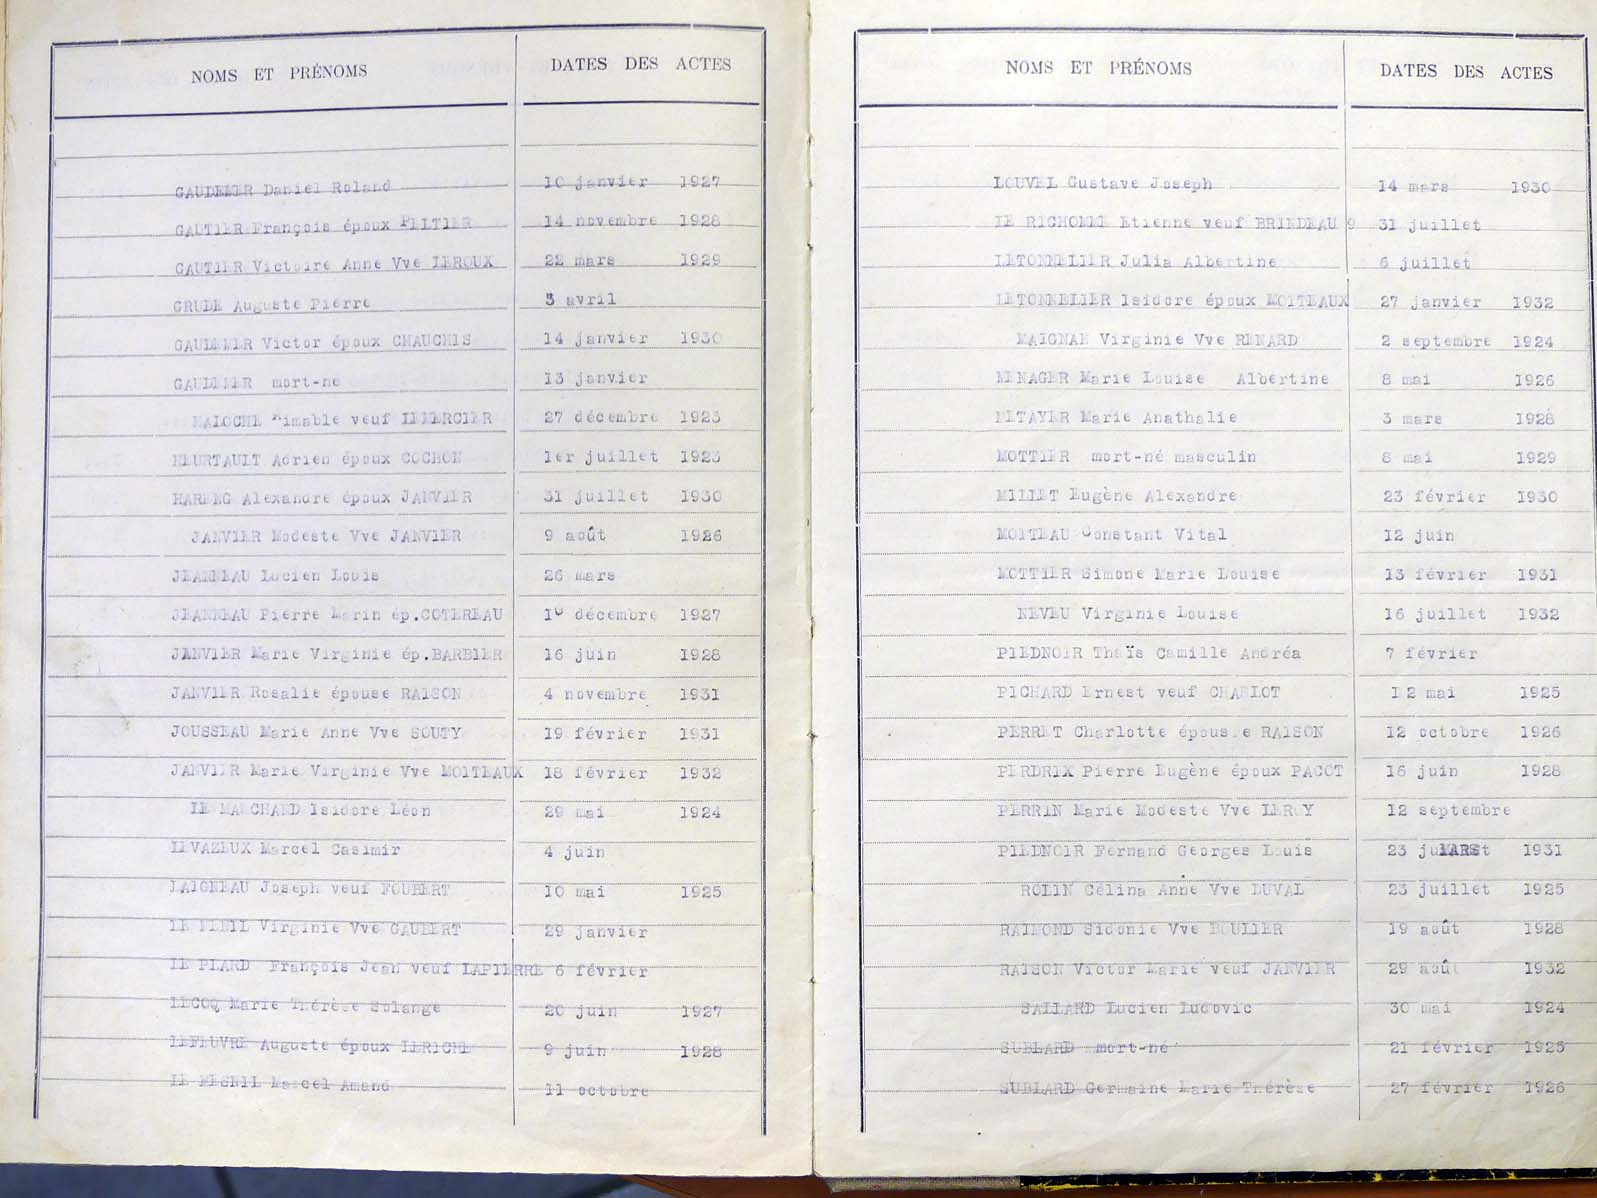 NOMS ET PRÉNOMS DATES DES ACTES
GAUDEMER Daniel Roland 10 janvier 1927
GAUTIER François époux PELTIER 14 novembre 1928
GAUTIER Victoire Anne Vve LEROUX 22 mars 1929
GRUDE Auguste Pierre 3 avril
GAUDEMER Victor époux CHAUCHIS 14 janvier 1930
GAUDEMER mort-né 13 janvier
HALOCHE Aimable veuf LEMERCIER 27 décembre 1923
HEURTAULT Adrien époux COCHON 1er juillet 1923
HARENG Alexandre époux JANVIER 31 juillet 1930
JANVIER Modeste Vve JANVIER 9 août 1926
JEANNEAU Lucien Louis 26 mars
JEANNEAU Pierre Marin ép.COTEREAU décembre 1927
JANVIER Marie Virginie ép.BARBIER 16 juin 1928
JANVIER Rosalie épouse RAISON 4 novembre 1931
JOUSSEAU Marie Anne Vve SOUTY 19 février 1931
JANVIER Marie Virginie Vve MOITEAUX 18 février 1932
LE MARCHAND Isidore Léon 29 mai 1924
LEVAZEUX Marcel Casimir 4 juin
LAIGNEAU Joseph veuf FOUBERT 10 mai 1925
LE MENIL Virginie Vve GAUBERT 29 janvier
LE PLARD François Jean veuf LAPIERRE 6 février
LECOQ Marie Thérèse Solange 20 juin 1927
LEFEUVRE Auguste époux LERICHE 9 juin 1928
LE MESNIL Marcel Amand 11 octobre
NOMS ET PRÉNOMS DATES DES ACTES
LOUVEL Gustave Joseph 14 mars 1930
LE RICHOMME Etienne veuf BRINDEAU 9 31 juillet
LETONNELIER Julia Albertine 6 juillet
LETONNELIER Isidore époux MOITEAUX 27 janvier 1932
MAIGNAN Virginie Vve RENARD 2 septembre 1924
MENAGER Marie Louise Albertine 8 mai 1926
METAYER Marie Anathalie 3 mars 1928
MOTTIER mort-né masculin 8 mai 1929
MILLET Eugène Alexandre 23 février 1930
MOITEAU Constant Vital 12 juin
MOTTIER Simone Marie Louise 13 février 1931
NEVEU Virginie Louise 16 juillet 1932
PIEDNOIR Thaïs Camille Andréa 7 février
PICHARD Ernest veuf CHARLOT 12 mai 1925
PERRET Charlotte épouse RAISON 12 octobre 1926
PERDRIX Pierre Eugène époux PACOT 16 juin 1928
PERRIN Marie Modeste Vve LEROY 12 septembre
PIEDNOIR Fernand Georges Louis 23 MARS 1931
ROLIN Célina Anne Vve DUVAL 23 juillet 1925
RAIMOND Sidonie Vve BOULIER 19 août 1928
RAISON Victor Marie veuf JANVIER 29 août 1932
SALLARD Lucien Ludovic 30 mai 1924
SUBLARD mort-né 21 février 1925
SUBLARD Germaine Marie Thérèse 27 février 1926